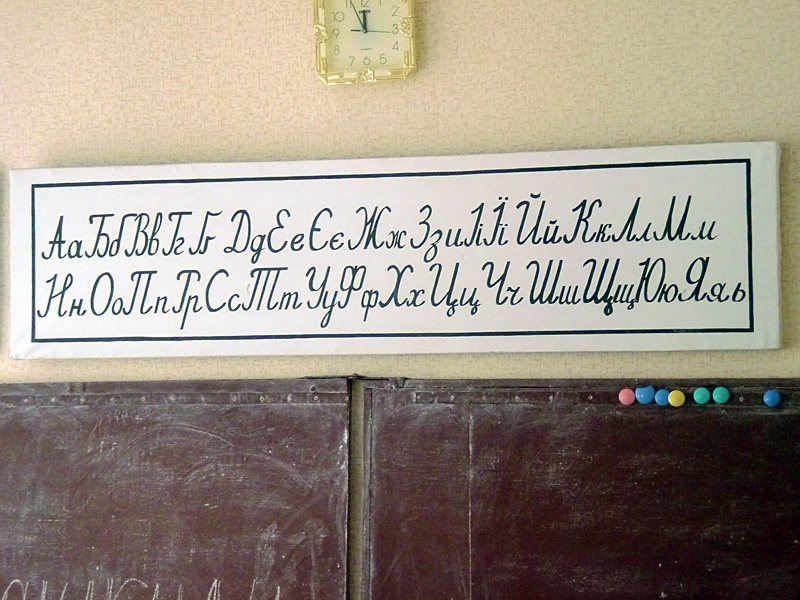 12
10 2
9 3
8 4
7 6 5
Аа Бб Вв Гг Ґґ Дд Ее Єє Жж Зз и Іі Її Йй Кк Лл Мм
Нн Оо Пп Рр Сс Тт Уу Фф Хх Цц Чч Шш Щщ Юю Яя ь